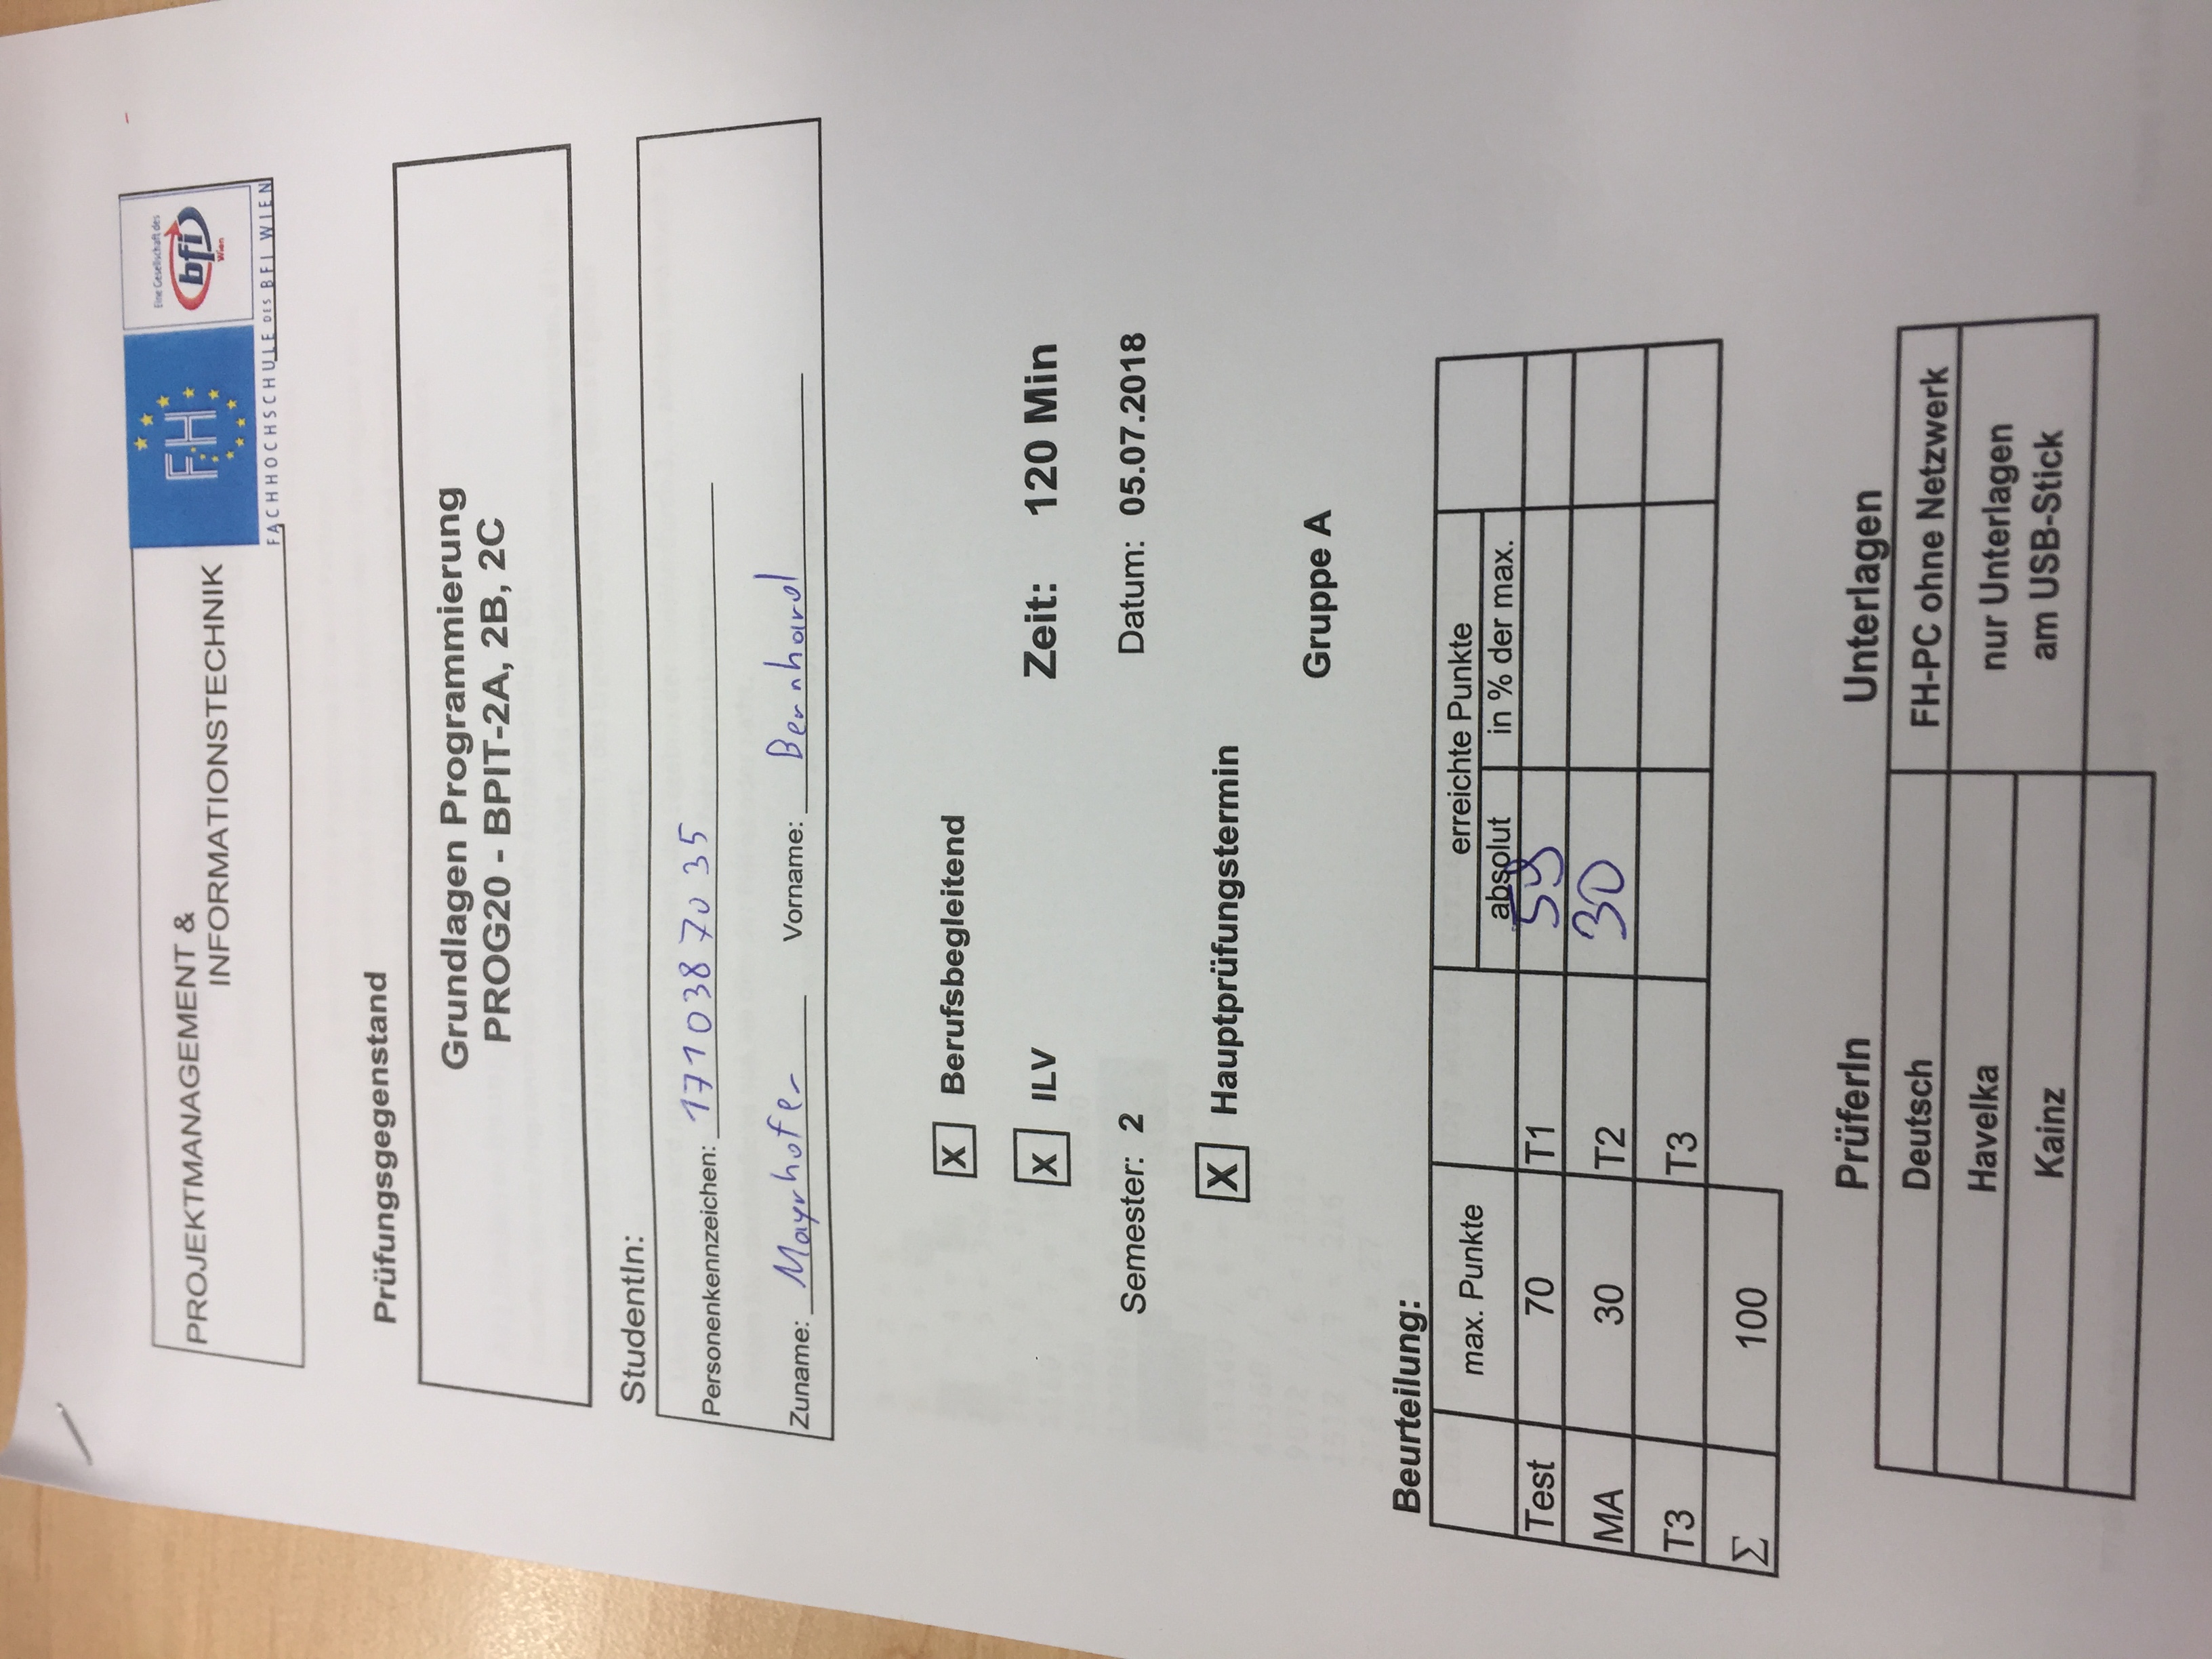 PROJEKTMANAGEMENT &
INFORMATIONSTECHNIK
FH
Eine Gesellschaft des
bfi
Wien
FACHHOCHSCHULE DES BFI WIEN
Prüfungsgegenstand
Grundlagen Programmierung
PROG20 - BPIT-2A, 2B, 2C
StudentIn:
Personenkennzeichen: 1710387035
Zuname: Mayrhofer Vorname: Bernhard
X Berufsbegleitend
X ILV Zeit: 120 Min
Semester: 2 Datum: 05.07.2018
X Hauptprüfungstermin
Gruppe A
Beurteilung:
max. Punkte erreichte Punkte
absolut in % der max.
Test 70 T1 59
MA 30 T2 30
T3 T3
Σ 100
PrüferIn Unterlagen
Deutsch FH-PC ohne Netzwerk
Havelka nur Unterlagen
Kainz am USB-Stick